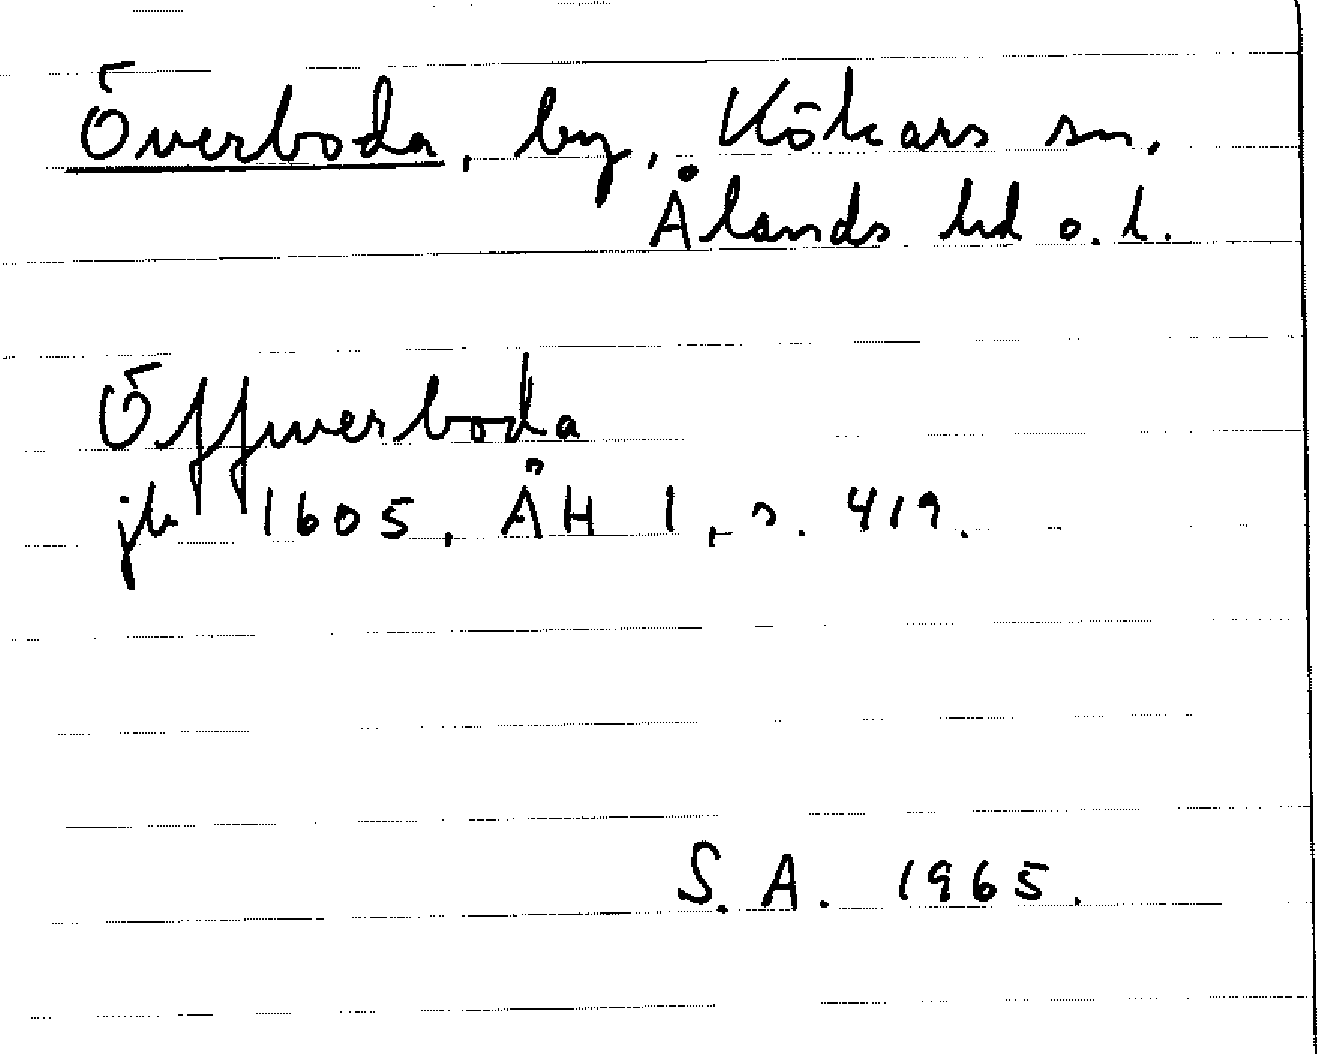 Överboda, by, Kökars sn,
Ålands hd o. l.
Öffwerboda
jb 1605, ÅH I, s. 419.
S. A. 1965.